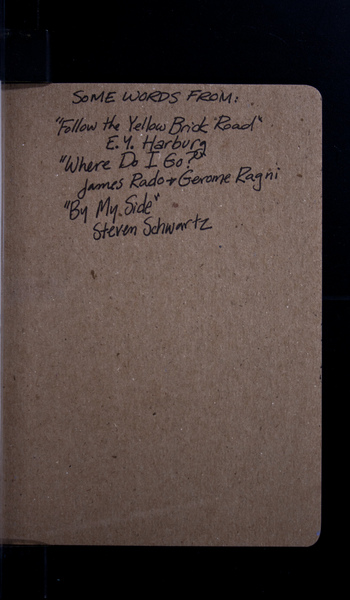 SOME WORDS FROM:
"Follow the Yellow Brick Road"
E. Y. Harburg
"Where Do I Go?"
James Rado + Gerome Ragni
"By My Side"
Steven Schwartz